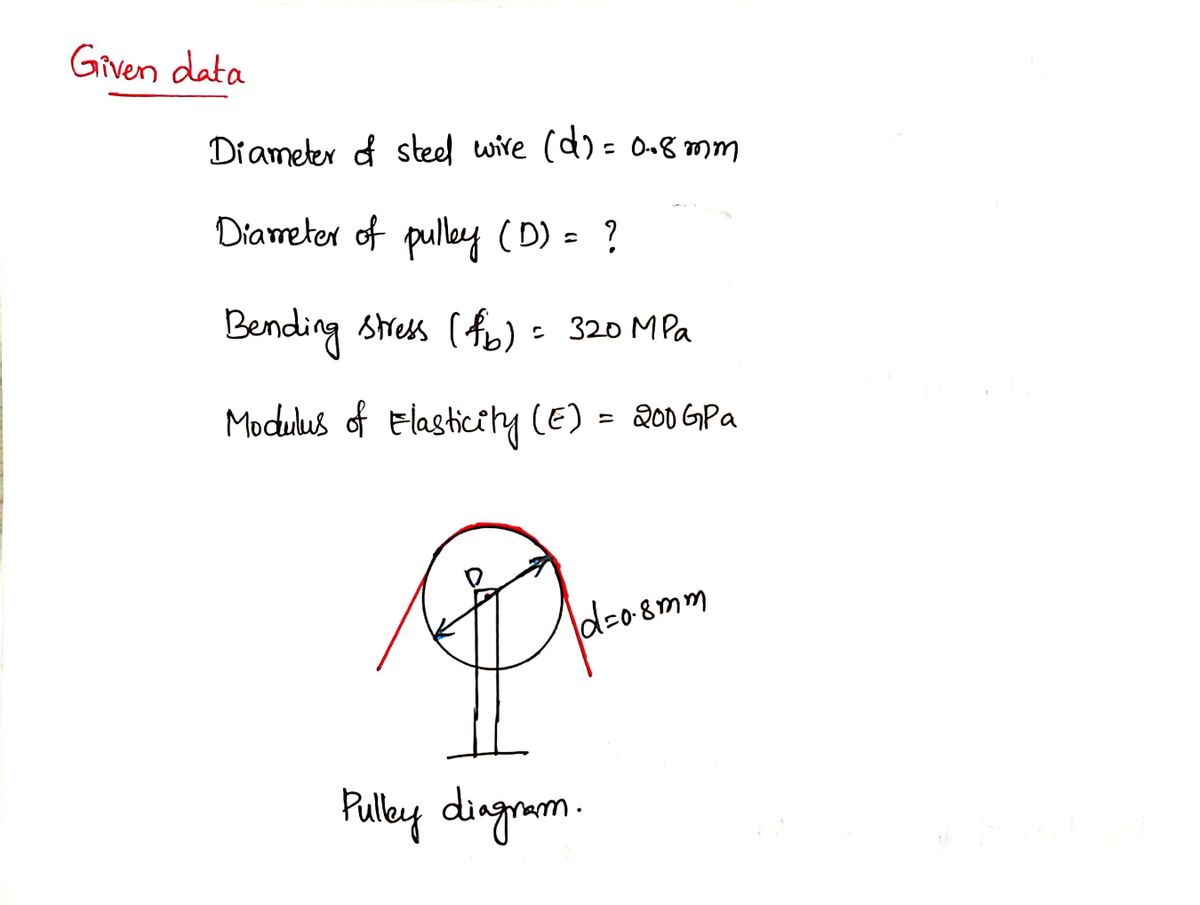 Given data
Diameter of steel wire (d) = 0.8 mm
Diameter of pulley (D) = ?
Bending stress (fb) = 320 MPa
Modulus of Elasticity (E) = 200 GPa
D
d=0.8mm
Pulley diagram.